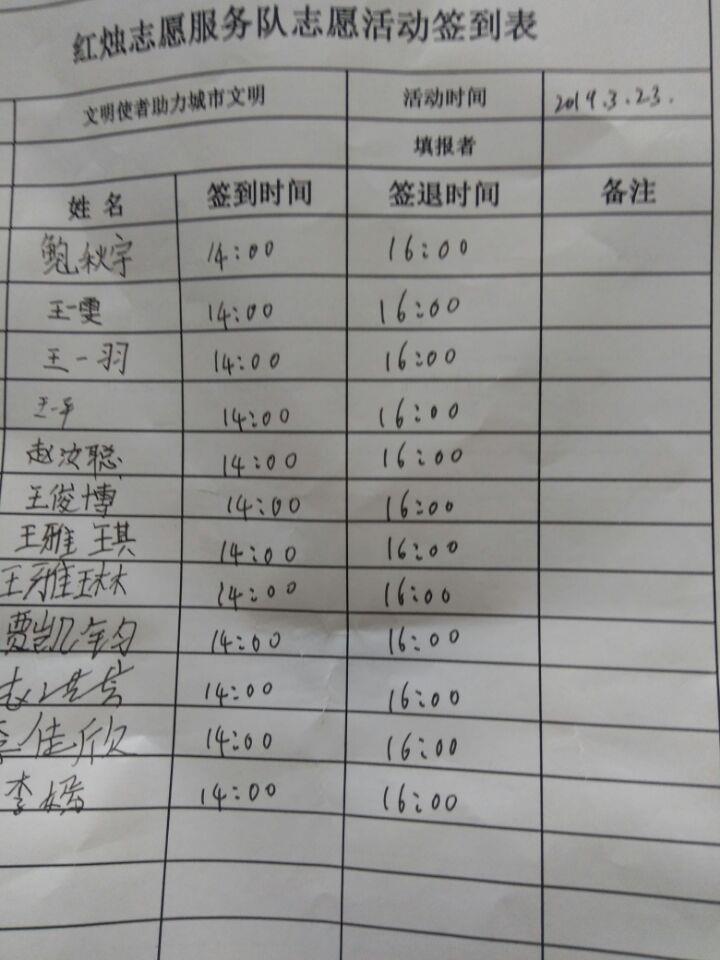 红烛志愿服务队志愿活动签到表
文明使者助力城市文明 活动时间 2019.3.23.
填报者
姓名 签到时间 签退时间 备注
鲍秋宇 14:00 16:00
王一雯 14:00 16:00
王一羽 14:00 16:00
王一平 14:00 16:00
赵汝聪 14:00 16:00
王俊博 14:00 16:00
王雅琪 14:00 16:00
王雅琳 14:00 16:00
贾凯钧 14:00 16:00
14:00 16:00
李佳欣 14:00 16:00
李嫣 14:00 16:00